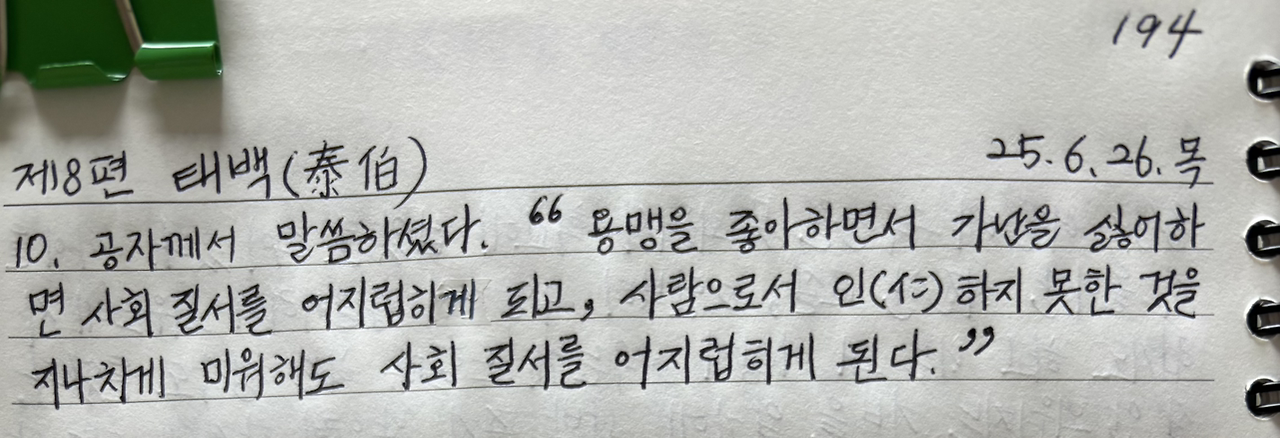 194
제8편 태백(泰伯) 25.6.26.목
10. 공자께서 말씀하셨다. “용맹을 좋아하면서 가난을 싫어하
면 사회 질서를 어지럽히게 되고, 사람으로서 인(仁)하지 못한 것을
지나치게 미워해도 사회 질서를 어지럽히게 된다.”